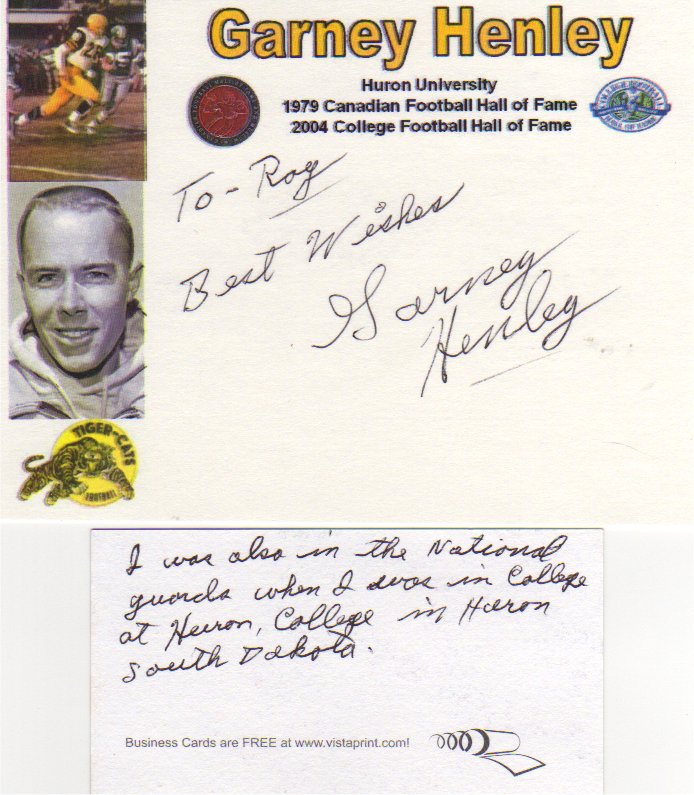 Garney Henley
Huron University
1979 Canadian Football Hall of Fame
2004 College Football Hall of Fame
To - Roy
Best Wishes
Garney
Henley
TIGER-CATS
FOOTBALL
I was also in the National
guards when I was in College
at Huron, College in Huron
South Dakota.
Business Cards are FREE at www.vistaprint.com!